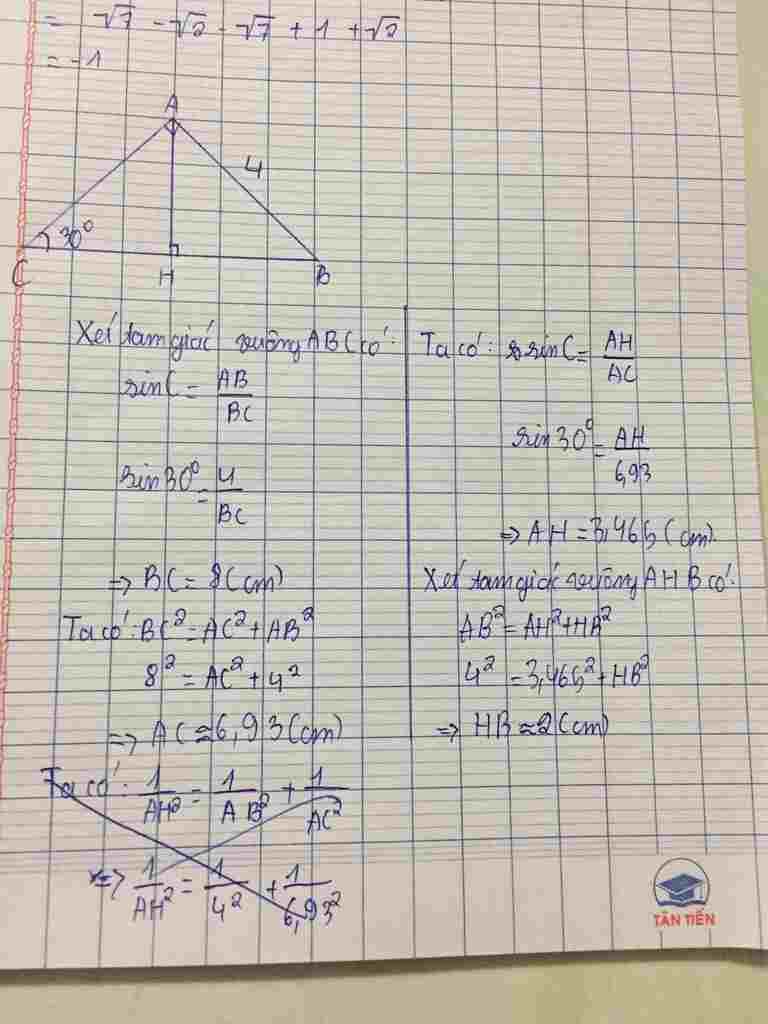 = √7 - √2 - √7 + 1 + √2
= -1
A
4
30°
C
H
B
Xét tam giác vuông ABC có:
sinC = AB/BC
sin30° = 4/BC
=> BC = 8(cm)
Ta có: BC² = AC² + AB²
8² = AC² + 4²
=> AC ≈ 6,93(cm)
Ta có: 1/AH² = 1/AB² + 1/AC²
=> 1/AH² = 1/4² + 1/6,93²
Ta có: sinC = AH/AC
sin30° = AH/6,93
=> AH = 3,465(cm).
Xét tam giác vuông AHB có:
AB² = AH² + HB²
4² = 3,465² + HB²
=> HB ≈ 2(cm)
TÂN TIẾN